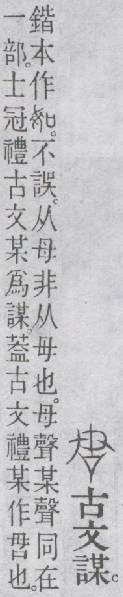 古文謀。
鍇本作𠰔。不誤。从母非从毋也。母聲某聲同在
一部。士冠禮古文某爲謀。葢古文禮某作𠰔也。